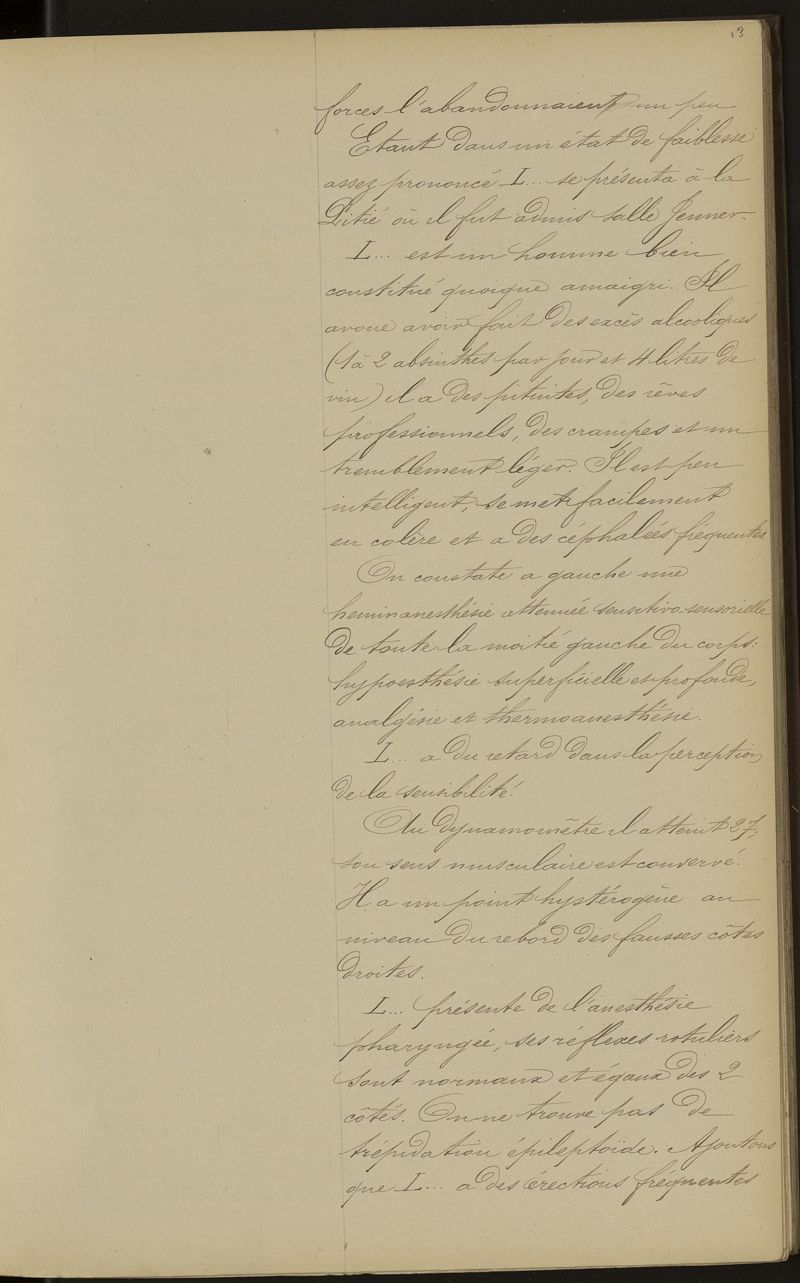 13
forces l'abandonnaient un peu
Etant dans un état de faiblesse
assez prononcé L... se présenta à la
Pitié où il fut admis salle Jenner.
L... est un homme bien
constitué quoique amaigri. Il
avoue avoir fait des excès alcooliques
(1 à 2 absinthes par jour et 4 litres de
vin) il a des pituites, des rêves
professionnels, des crampes et un
tremblement léger. Il est peu
intelligent, se met facilement
en colère et a des céphalées fréquentes
On constate a gauche une
hemianesthésie attenuée sensitivo sensorielle
de toute la moitié gauche du corps:
hypoesthésie superficielle et profonde,
analgésie et thermoanesthésie.
L... a du retard dans la perception
de la sensibilité.
Au dynamomètre il atteint 27,
son sens musculaire est conservé.
Il a un point hystérogène au
niveau du rebord des fausses côtes
droites.
L... présente de l'anesthésie
pharyngée, ses réflexes rotuliens
sont normaux et égaux des 2
côtés. On ne trouve pas de
trépidation épileptoïde. Ajoutons
que L... a des érections fréquentes